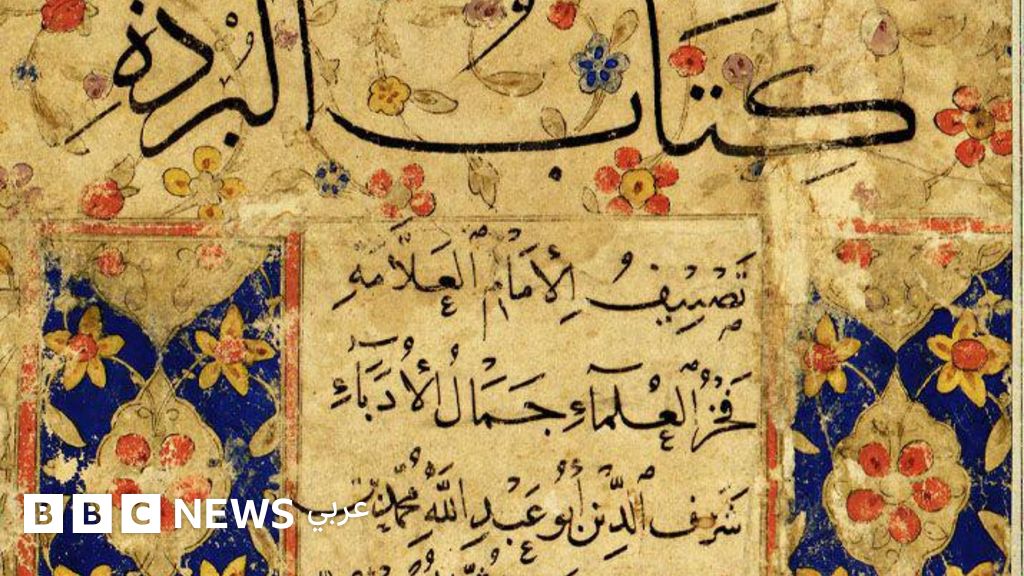 كِتَابُ البُرْدَةِ
تَصْنِيفُ الْإِمَامِ الْعَلَّامَهِ
فَخْرُ الْعُلَمآءِ جَمَالُ الْأُدَبَآءِ
شَرَفِ الدِّينِ أَبُو عَبْدِ اللَّهِ مُحَمَّدِ بْنِ
BBC NEWS عربي